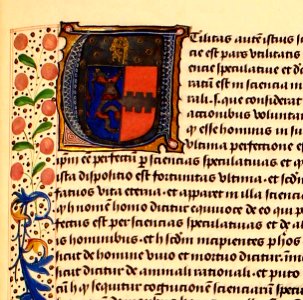 Utilitas autē istius sc
tie est pars utilitatis
encie speculatiue et di
ratū est in sciencia in
rali. s. que considerat
actiones voluntar
ꝙ esse hominis in s
vltima perfectione e
ipm eē perfectū p sciencias speculatiuas et
ista dispositio est fortunitas vltima. et s
fatios vita eterna. et apparet in illa scienci
ꝙ h nomen homo dicitur equiuoce de eo qui p
fectus est per sciencias speculatiuas et de a
is hominibus. et hoīm incipientes p hos
sicut de homine viuo et mortuo dicitur.
sicut dicitur de animali rationali. et puto
cū h ꝙ sequitur cognitionem scienciarū specul